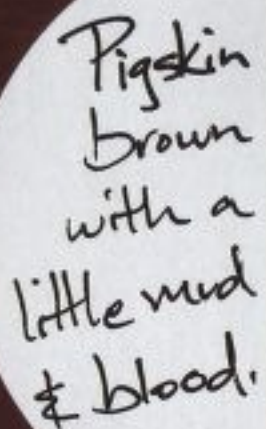 Pigskin
brown
with a
little mud
& blood.